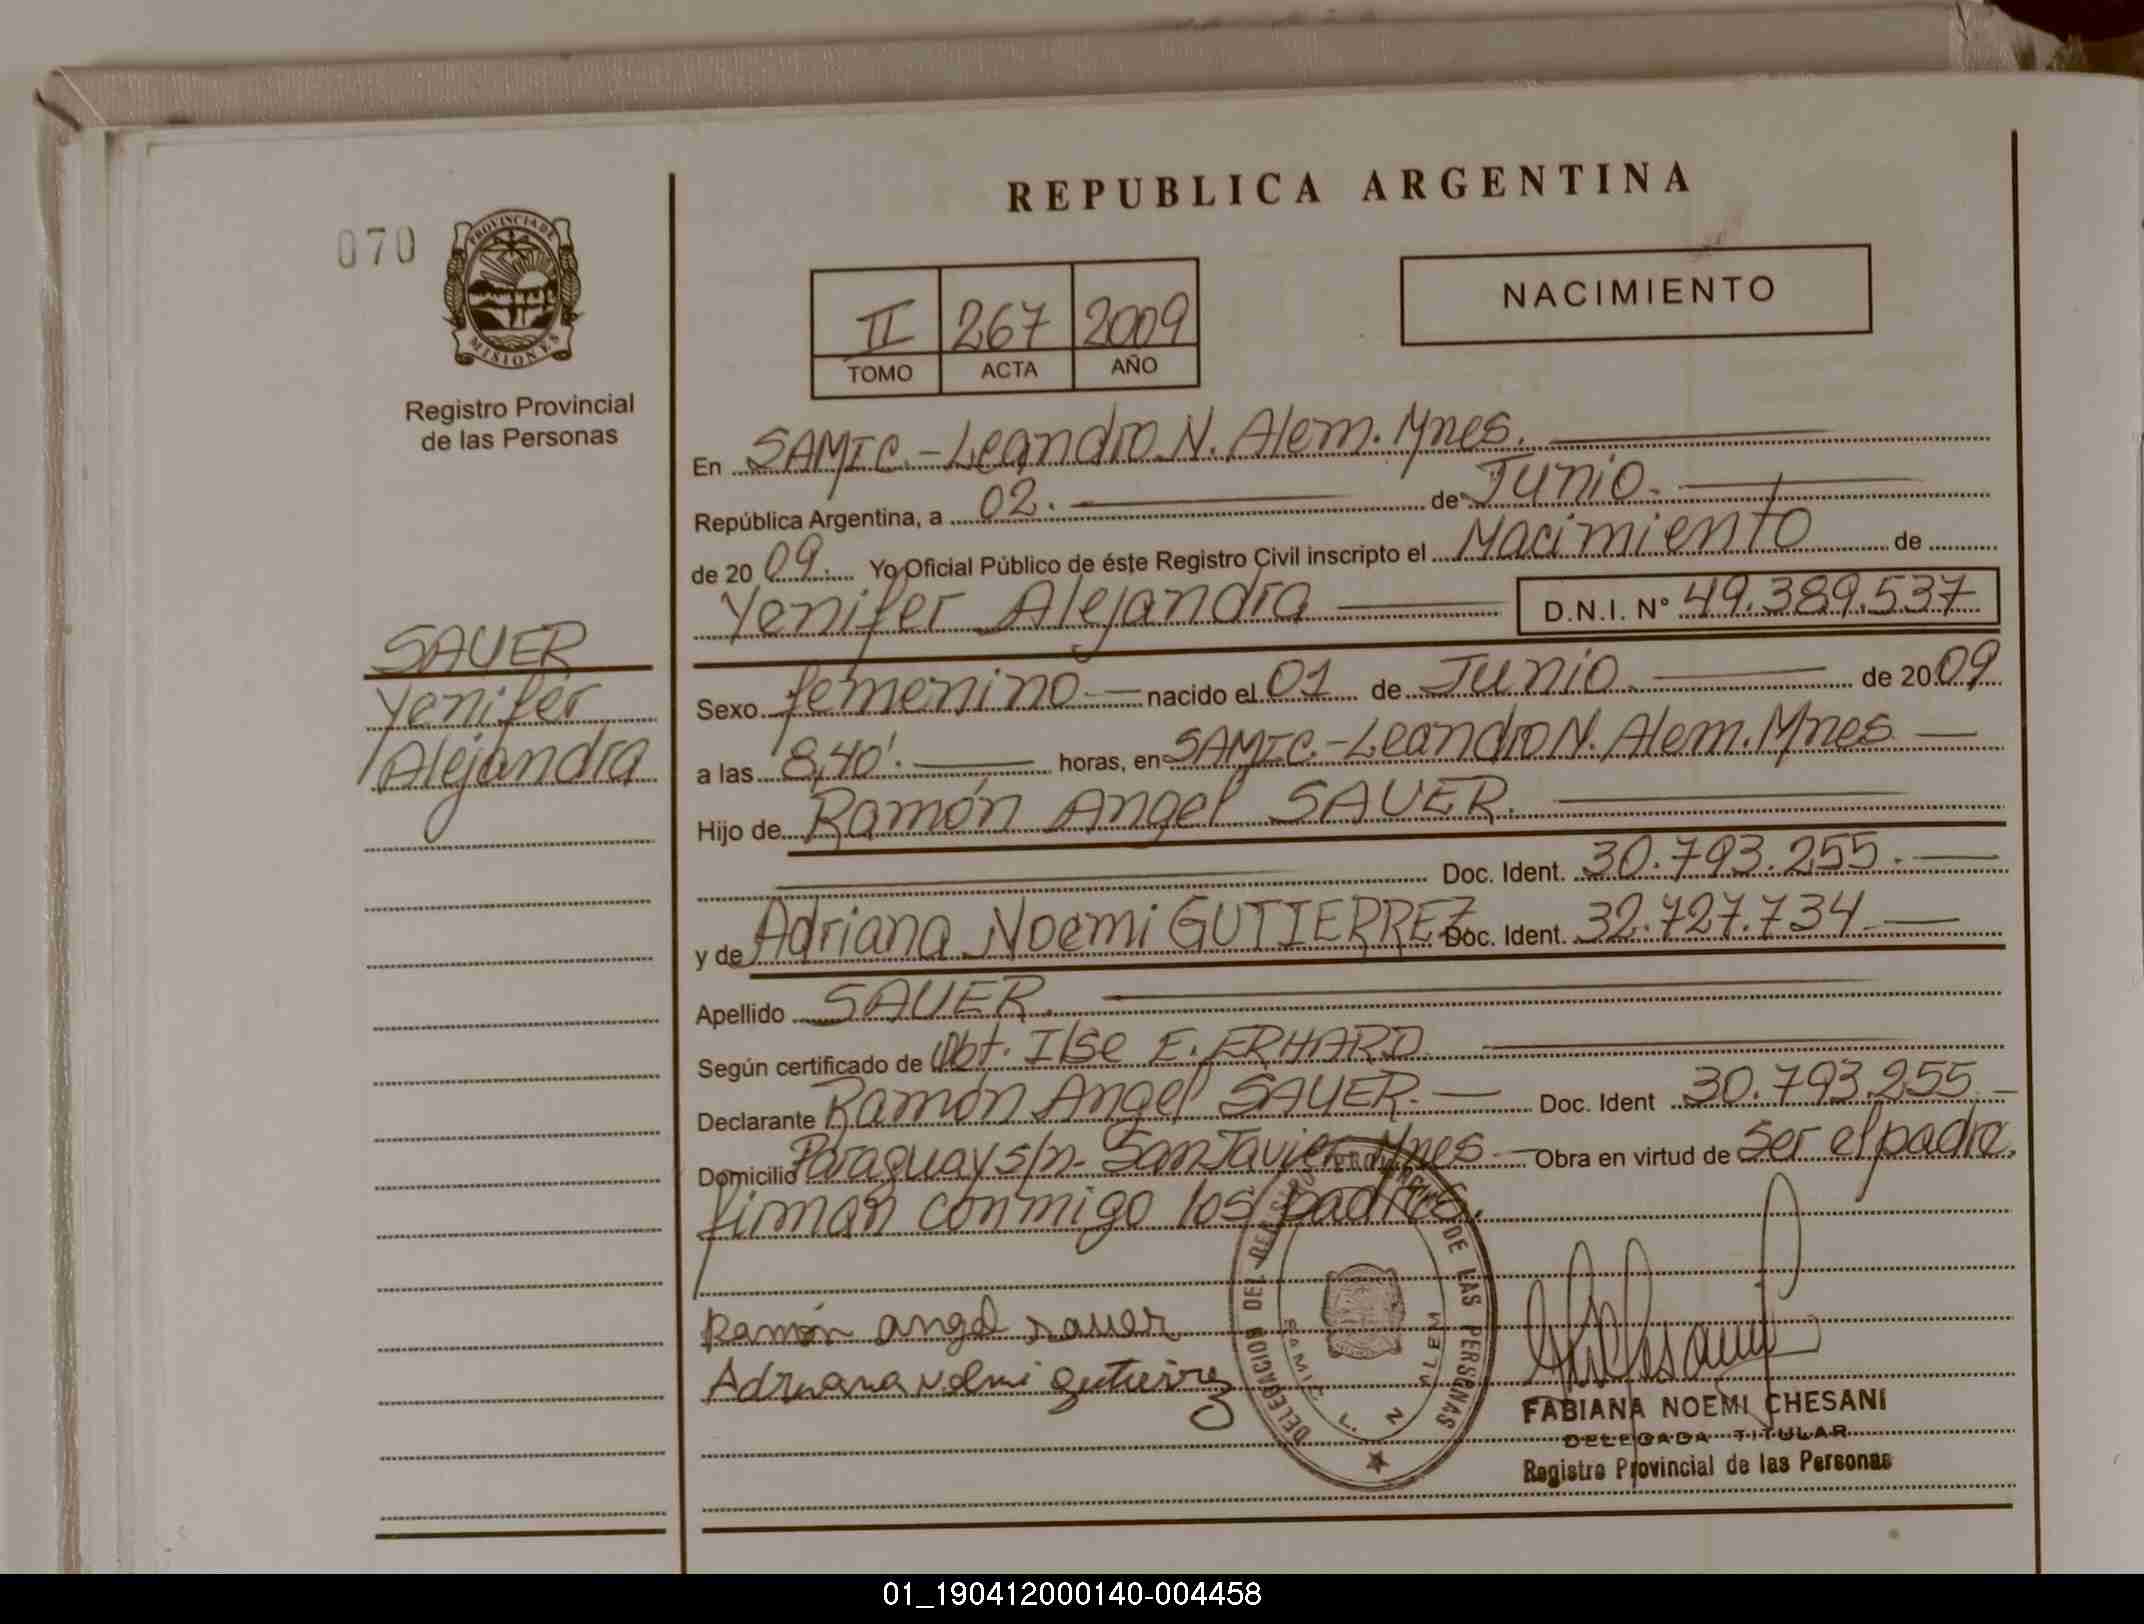 REPUBLICA ARGENTINA
070
PROVINCIA DE
MISIONES
Registro Provincial
de las Personas
II 267 2009
TOMO ACTA AÑO
NACIMIENTO
En SAMIC.-Leandro N. Alem. Mnes.
República Argentina, a 02. de Junio.
de 2009. Yo Oficial Público de éste Registro Civil inscripto el Nacimiento de
Yenifer Alejandra D.N.I. Nº 49.389.537
SAUER
Yenifer
Alejandra
Sexo femenino nacido el 01 de Junio. de 2009
a las 8,40'. horas, en SAMIC.-Leandro N. Alem. Mnes
Hijo de Ramón Angel SAUER.
Doc. Ident. 30.793.255.
y de Adriana Noemi GUTIERREZ Doc. Ident. 32.727.734
Apellido SAUER.
Según certificado de Obt. Ilse E. ERHARD
Declarante Ramón Angel SAUER. Doc. Ident 30.793.255
Domicilio Paraguay s/n- San Javier. Mnes Obra en virtud de ser el padre.
firman conmigo los padres.
Ramón angel sauer
Adriana noemi gutierrez
DELEGACION DEL REGISTRO PROVINCIAL DE LAS PERSONAS
SAMIC L. N ALEM
FABIANA NOEMI CHESANI
DELEGADA TITULAR
Registro Provincial de las Personas
01_190412000140-004458